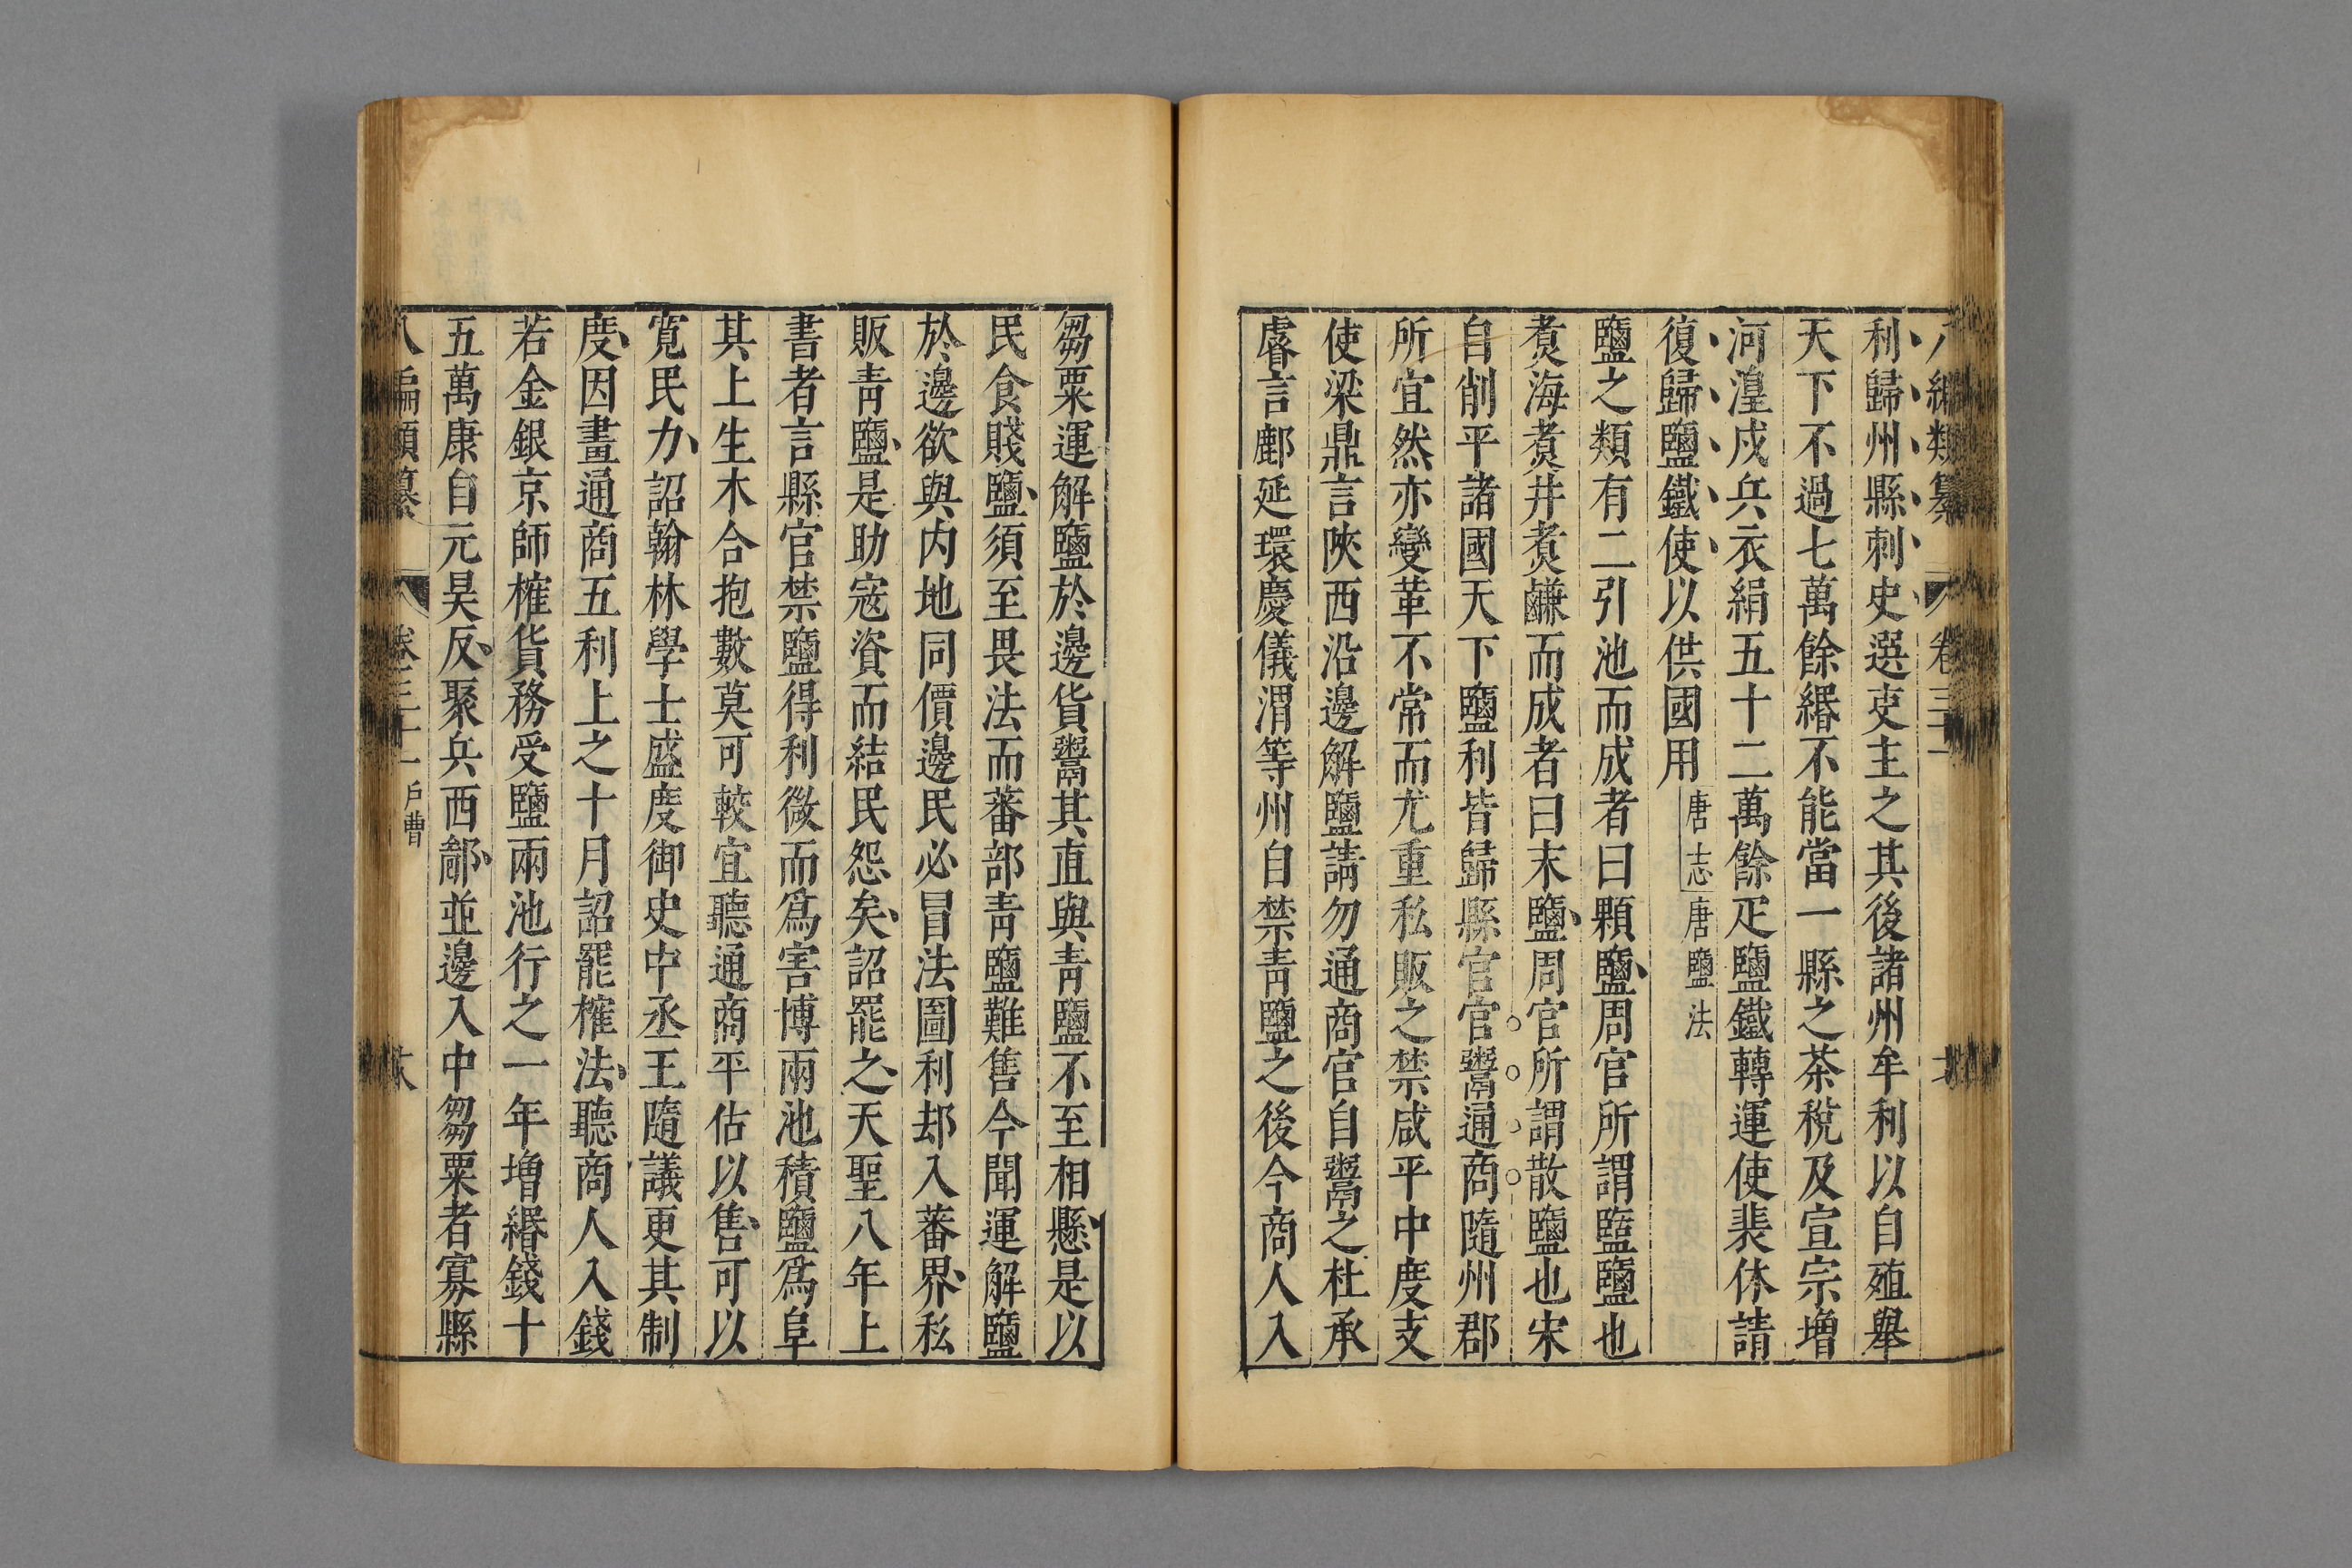 利歸州縣刺史選吏主之其後諸州牟利以自殖舉
天下不過七萬餘緡不能當一縣之茶稅及宣宗增
河湟戍兵衣絹五十二萬餘疋鹽鐵轉運使裴休請
復歸鹽鐵使以供國用唐志唐鹽法
鹽之類有二引池而成者曰顆鹽周官所謂盬鹽也
煑海煑井煑鹻而成者曰末鹽周官所謂散鹽也宋
自削平諸國天下鹽利皆歸縣官官鬻通商隨州郡
所宜然亦變革不常而尤重私販之禁咸平中度支
使梁鼎言陜西沿邊解鹽請勿通商官自鬻之杜承
睿言鄜延環慶儀渭等州自禁青鹽之後今商人入
芻粟運解鹽於邊貨鬻其直與青鹽不至相懸是以
民食賤鹽須至畏法而蕃部青鹽難售今聞運解鹽
於邊欲與内地同價邊民必冒法圖利却入蕃界私
販青鹽是助寇資而結民怨矣詔罷之天聖八年上
書者言縣官禁鹽得利微而爲害博兩池積鹽爲阜
其上生木合抱數莫可較宜聽通商平估以售可以
寬民力詔翰林學士盛度御史中丞王隨議更其制
度因畫通商五利上之十月詔罷榷法聽商人入錢
若金銀京師榷貨務受鹽兩池行之一年增緡錢十
五萬康自元昊反聚兵西鄙並邊入中芻粟者寡縣
八編類纂 卷三十一 戶曹